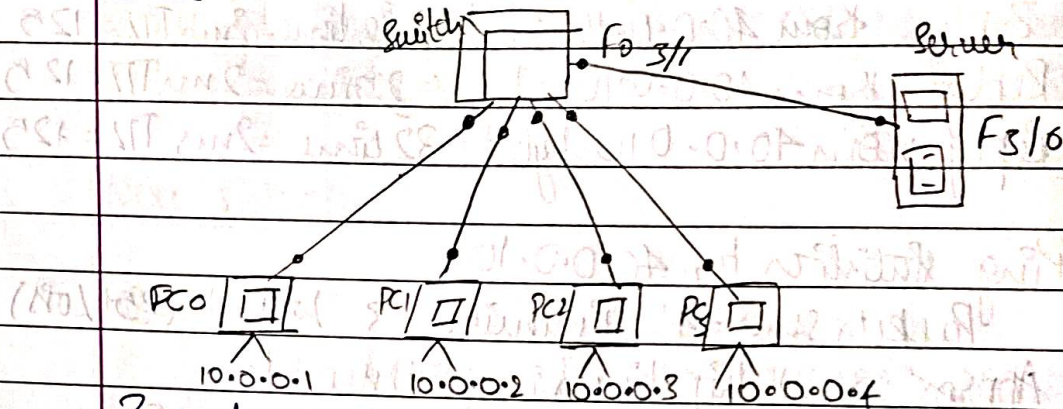 Switch
F0 3/1
Server
F3/0
PC0
PC1
PC2
PC3
10.0.0.1
10.0.0.2
10.0.0.3
10.0.0.4